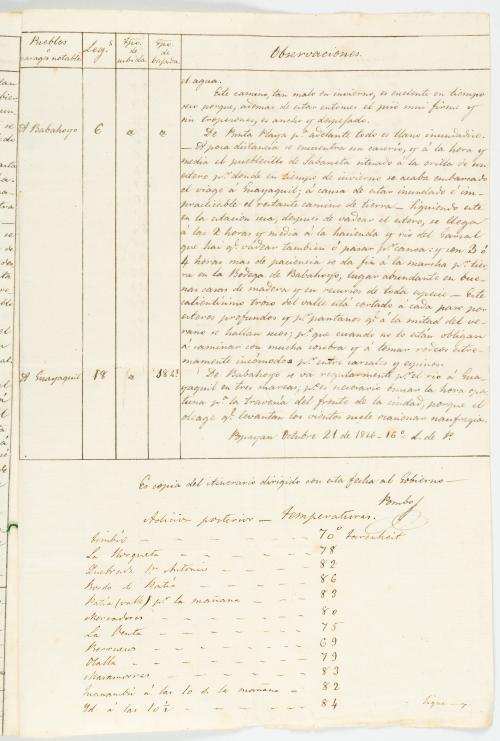 Pueblos ó parages notable Leg.s Tpo. de subida Tpo. de bajada Observaciones.
el agua.
Este camino, tan malo en invierno, es ecselente en tiempo
seco porque, ademas de estar entonces el piso mui firme y
sin tropesones, es ancho y despejado.
A Babahoyo 6 a a De Punta Playa p.a adelante todo es llano inundadizo.
— A poca distancia se encuentra un caserio, y á la hora y
media el pueblecillo de Sabaneta situado á la orilla de un
estero p.r donde en tiempo de invierno se acaba embarcado
el viage á Guayaquil; á causa de estar inundado é im-
practicable el restante camino de tierra — Siguiendo este
en la estacion seca, despues de vadear el estero, se llega
á las 2 horas y media á la hacienda y rio del Garzal
que hai q.e vadear tambien ó pasar p.r canoa: y con 3 ó
4 horas mas de paciencia se da fin á la marcha p.r tier-
ra en la Bodega de Babahoyo, lugar abundante en bue-
nas casas de madera y en recursos de toda especie — Este
calientisimo trozo del valle está cortado á cada paso por
esteros profundos y p.r pantanos q.e á la mitad del ve-
rano se hallan secos; p.o que cuando no lo están obligan
á caminar con mucha zozobra y á tomar rodeos estre-
mamente incómodos p.r entre zarzales y espinos.
A Guayaquil 18 a 184. De Babahoyo se va regularmente p.r el rio á Gua-
yaquil en tres mareas; p.o es necesario buscar la hora opor-
tuna p.a la travesia del frente de la ciudad, porque el
oleage q.e levantan los vientos suele ocasionar naufragios.
Popayan Octubre 21 de 1846 — 16.o d. de P.
Es copia del itinerario dirigido con esta fecha al Gobierno —
Pombo
Adicion posterior — temperaturas.
Timbío 70° Farenheit
La Horqueta 78
Quebrada S.n Antonio 82
Bordo de Patía 86
Patía (valle) p.r la mañana 83
Mercaderes 80
La Venta 75
Berruecos 69
Olalla 79
Masamorras 83
Guanambú á las 10 de la mañana 82
Id á las 10½ 84
Sigue